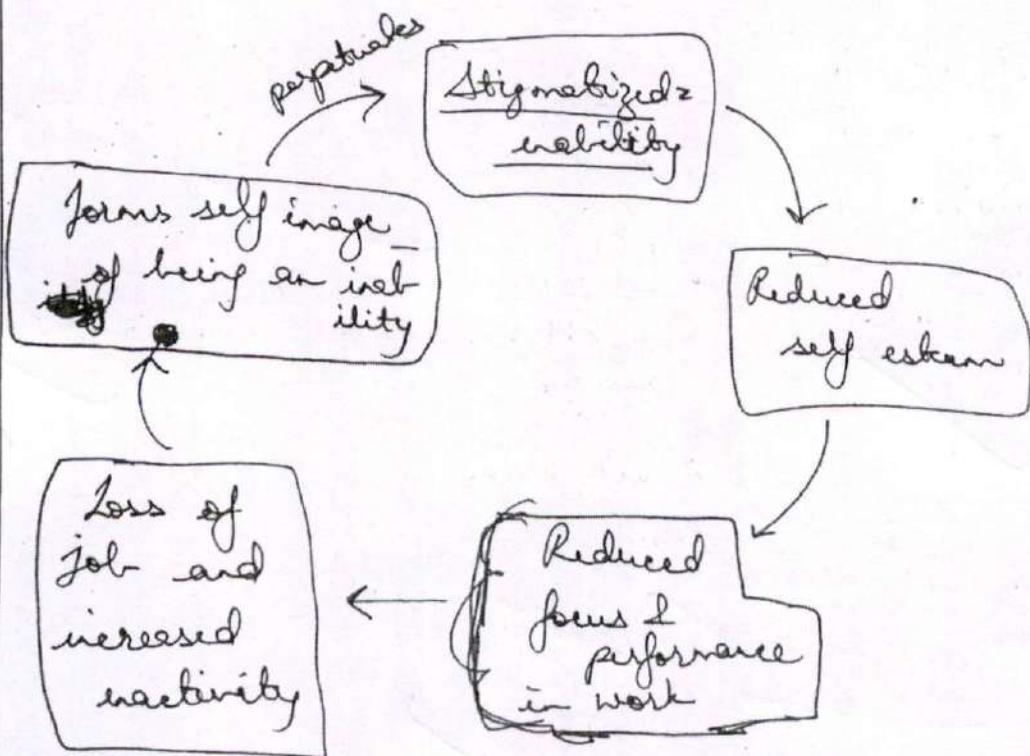 perpetuates
Stigmatized =
inability
Reduced
self esteem
Reduced
focus &
performance
in work
Loss of
job and
increased
inactivity
forms self image
of being an inab
ility